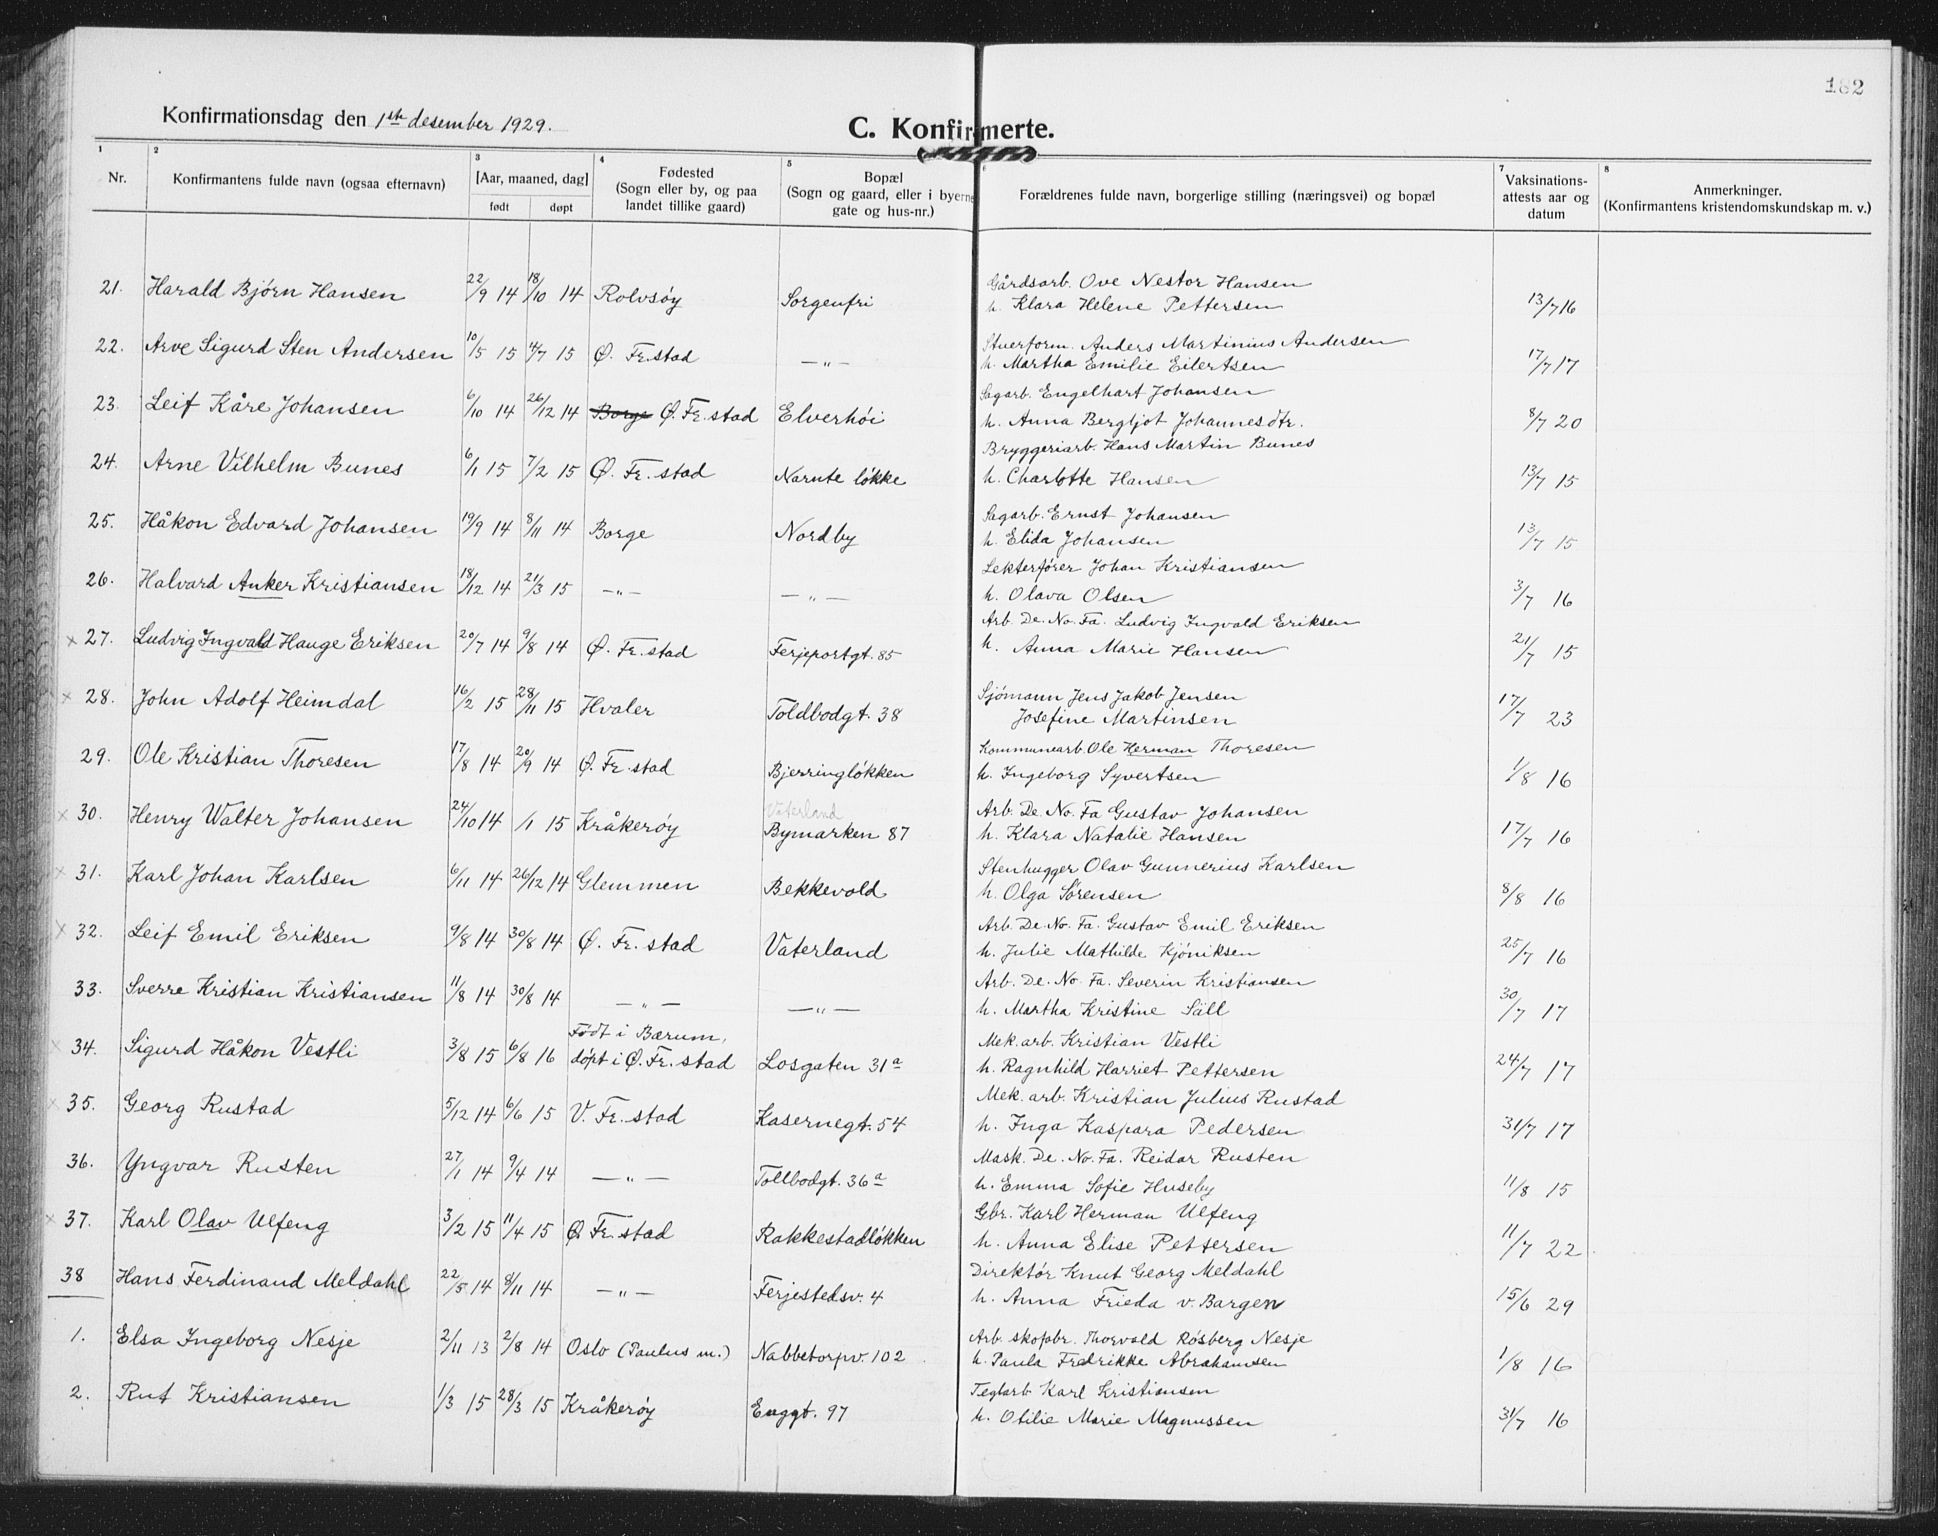 182
Konfirmationsdag den 1ste desember 1929.
C. Konfirmerte.
1 2 3 4 5 6 7 8
Nr. Konfirmantens fulde navn (ogsaa efternavn) [Aar, maaned, dag] født døpt Fødested (Sogn eller by, og paa landet tillike gaard) Bopæl (Sogn og gaard, eller i byerne gate og hus-nr.) Forældrenes fulde navn, borgerlige stilling (næringsvei) og bopæl Vaksinations-attests aar og datum Anmerkninger. (Konfirmantens kristendomskundskap m. v.)
21. Harald Bjørn Hansen 22/9 14 18/10 14 Rolvsøy Sorgenfri Gårdsarb. Ove Nestor Hansen
h. Klara Helene Pettersen 13/7 16
22. Arve Sigurd Sten Andersen 10/5 15 4/7 15 Ø. Fr.stad —"— Stuerform. Anders Martinius Andersen
h. Martha Emilie Eilertsen 17/7 17
23. Leif Kåre Johansen 6/10 14 26/12 14 Borge Ø. Fr.stad Elverhöi Sagarb. Engelhart Johansen
h. Anna Bergljot Johannesdtr. 8/7 20
24. Arne Vilhelm Bunes 6/1 15 7/2 15 Ø. Fr. stad Narnte løkke Bryggeriarb. Hans Martin Bunes
h. Charlotte Hansen 13/7 15
25. Håkon Edvard Johansen 19/9 14 8/11 14 Borge Nordby Sagarb. Ernst Johansen
h. Elida Johansen 13/7 15
26. Halvard Anker Kristiansen 18/12 14 21/3 15 —"— —"— Lekterfører Johan Kristiansen
h. Olava Olsen 3/7 16
x 27. Ludvig Ingvald Hauge Eriksen 20/7 14 9/8 14 Ø. Fr. stad Ferjeportgt. 85 Arb. De. No. Fa. Ludvig Ingvald Eriksen
h. Anna Marie Hansen 21/7 15
x 28. John Adolf Heimdal 16/2 15 28/11 15 Hvaler Toldbodgt. 38 Sjómann Jens Jakob Jensen
Josefine Martinsen 17/7 23
29. Ole Kristian Thoresen 17/8 14 20/9 14 Ø. Fr. stad Bjerringløkken Kommunearb. Ole Herman Thoresen
h. Ingeborg Syvertsen 1/8 16
x 30. Henry Walter Johansen 24/10 14 /1 15 Kråkerøy Vaterland Bymarken 87 Arb. De. No. Fa Gustav Johansen
h. Klara Natalie Hansen 17/7 16
x 31. Karl Johan Karlsen 6/11 14 26/12 14 Glemmen Bekkevold Stenhugger Olav Gunnerius Karlsen
h. Olga Sørensen 8/8 16
x 32. Leif Emil Eriksen 9/8 14 30/8 14 Ø. Fr. stad Vaterland Arb. De. No. Fa. Gustav Emil Eriksen
h. Julie Mathilde Kjöniksen 25/7 16
33. Sverre Kristian Kristiansen 11/8 14 30/8 14 —"— —"— Arb. De. No. Fa. Severin Kristiansen
h. Martha Kristine Säll 30/7 17
x 34. Sigurd Håkon Vestli 3/8 15 6/8 16 Født i Bærum, döpt i Ø. Fr. stad Losgaten 31a Mek. arb. Kristian Vestli
h. Ragnhild Harriet Pettersen 24/7 17
x 35. Georg Rustad 5/12 14 6/6 15 V. Fr. stad Kasernegt. 54 Mek. arb. Kristian Julius Rustad
h. Inga Kaspara Pedersen 31/7 17
36. Yngvar Rusten 27/1 14 9/4 14 —"— Tollbodgt. 36a Mask. De. No. Fa. Reidar Rusten
h. Emma Sofie Huseby 11/8 15
x 37. Karl Olav Ulfeng 3/2 15 11/4 15 Ø. Fr. stad Rakkestadløkken Gbr. Karl Herman Ulfeng
h. Anna Elise Pettersen 11/7 22
38 Hans Ferdinand Meldahl 22/5 14 8/11 14 —"— Ferjestedsv. 4 Direktör Knut Georg Meldahl
h. Anna Frieda v. Bargen 15/6 29
1. Elsa Ingeborg Nesje 2/11 13 2/8 14 Oslo (Paulus m.) Nabbetorpv. 102 Arb. skofabr. Thorvald Rösberg Nesje
h. Paula Fredrikke Abrahamsen 1/8 16
2. Rut Kristiansen 1/3 15 28/3 15 Kråkerøy Enggt. 97 Teglarb Karl Kristiansen
h. Otilie Marie Magnussen 31/7 16